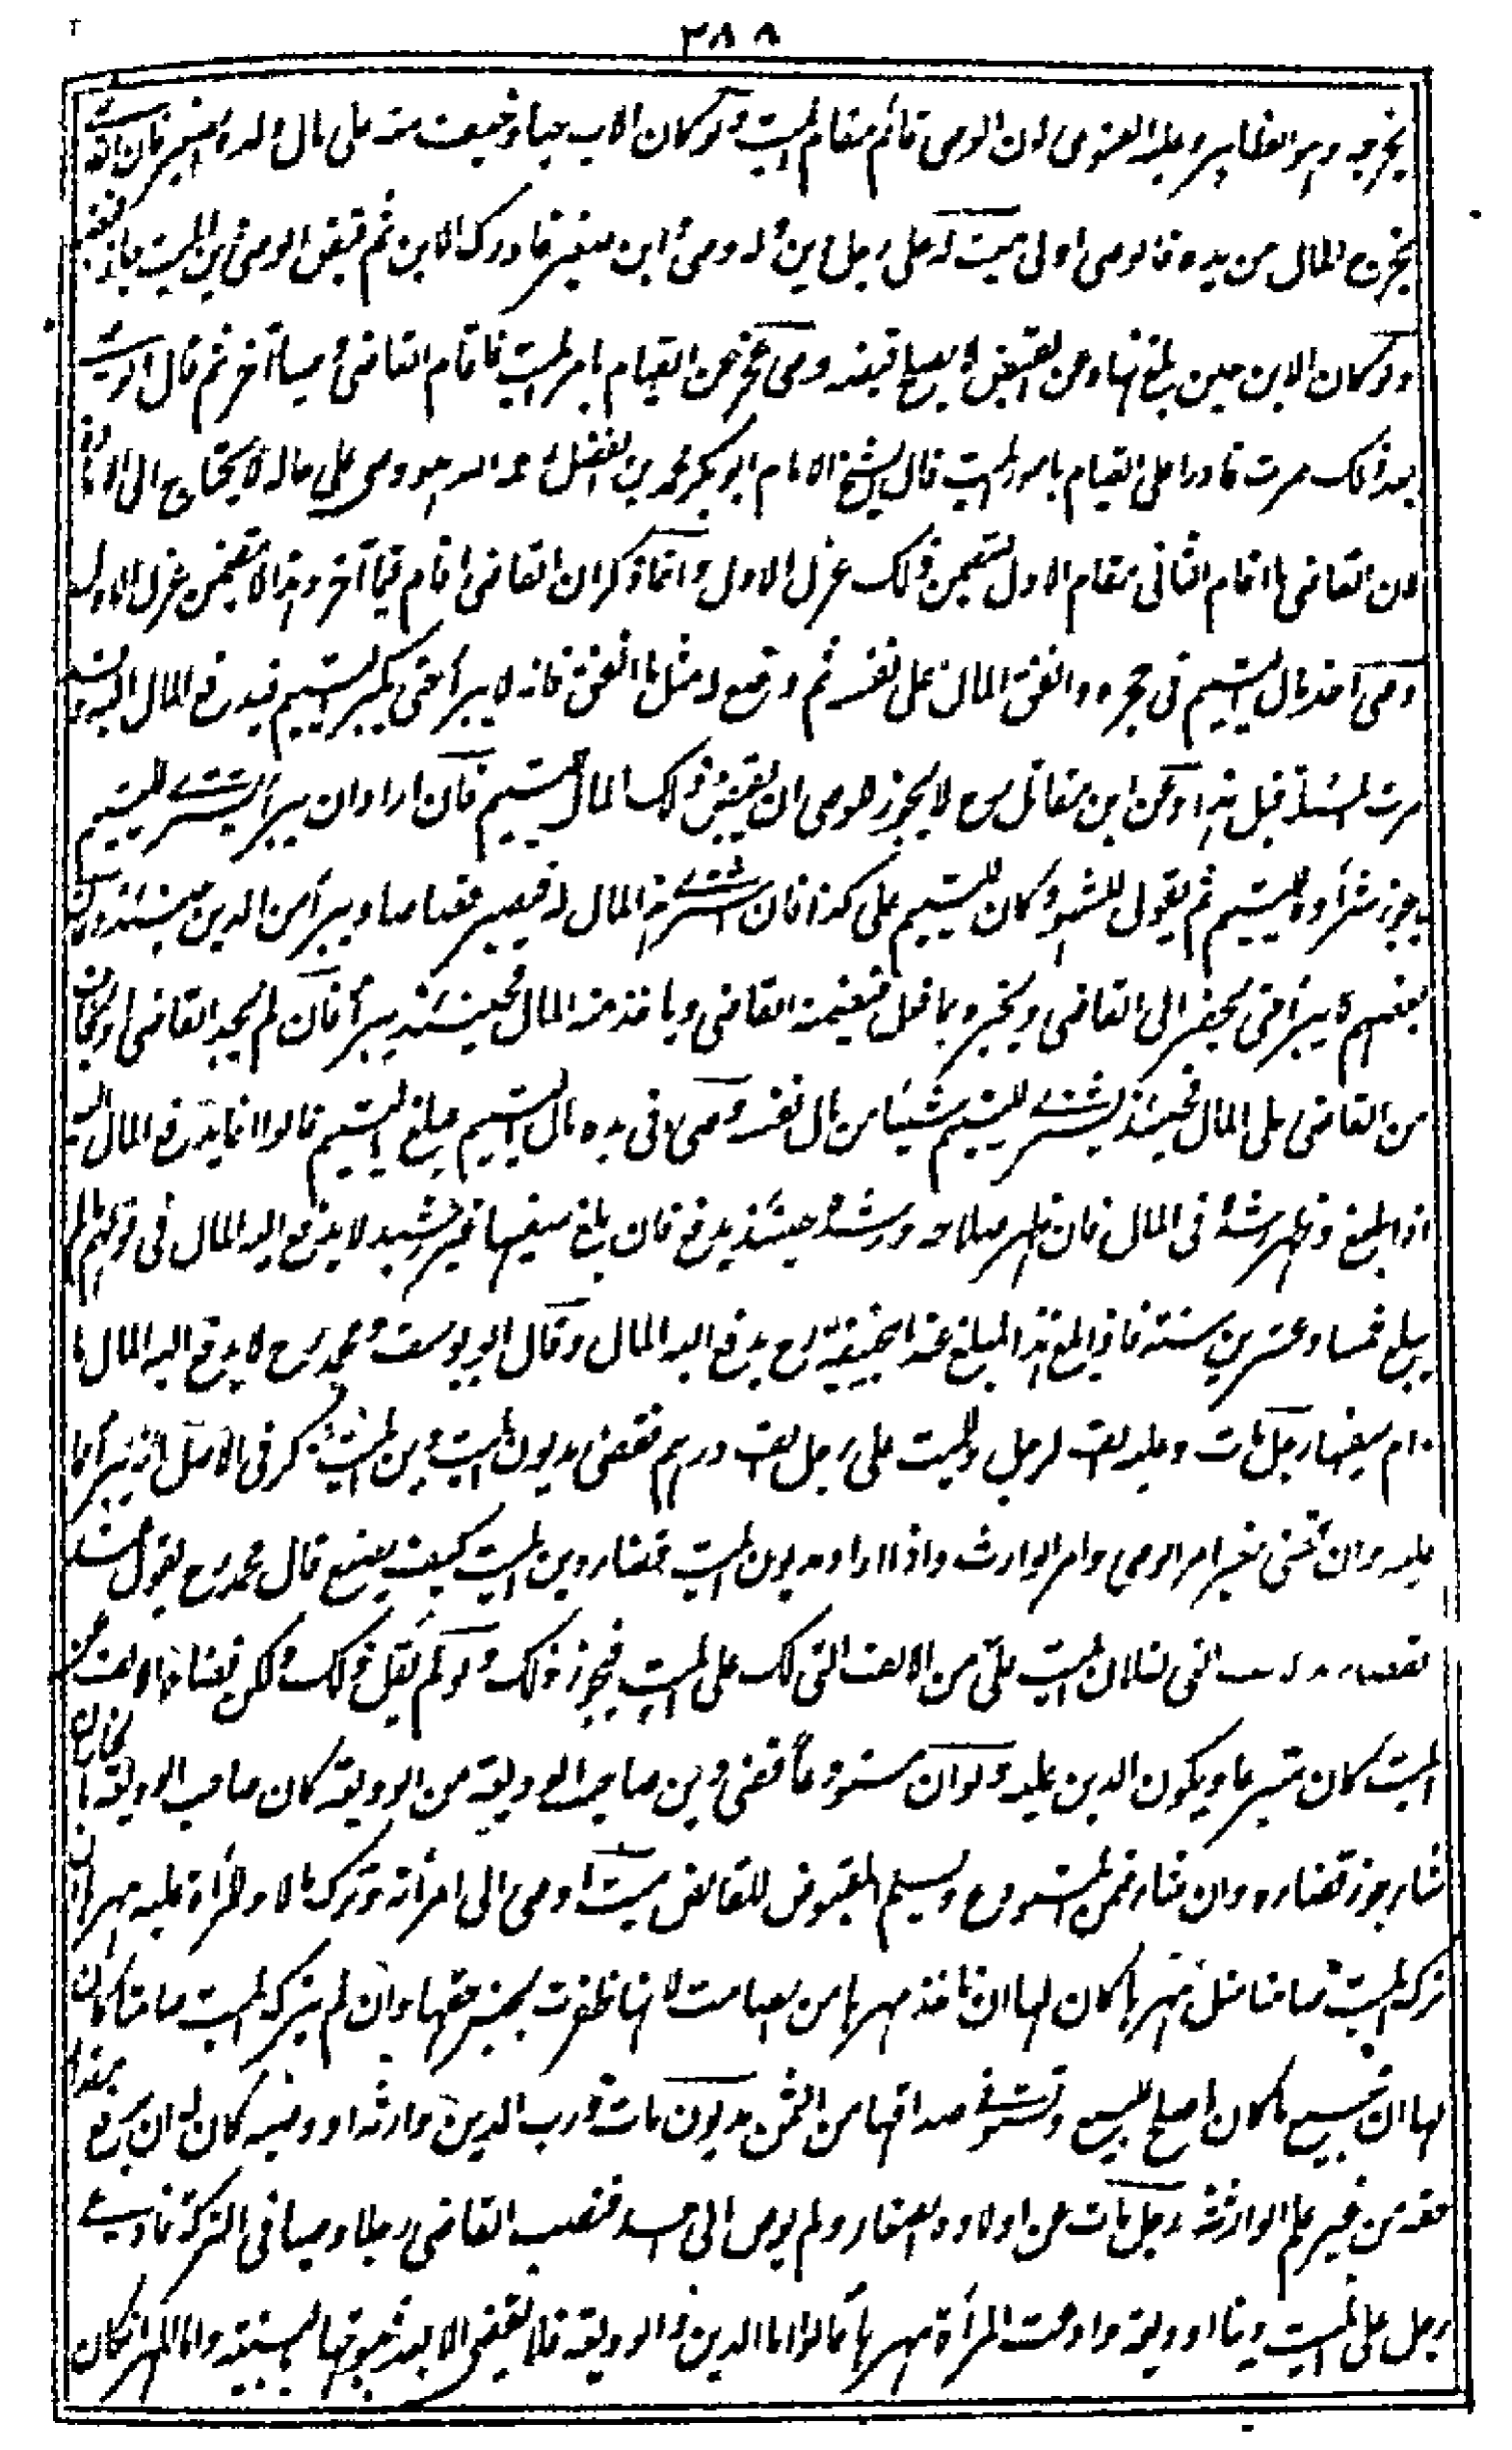 ٢٨٨
يخرجه وهو الظاهر وعليه الفتوى لان الوصى قائم مقام الميت ولو كان الاب حيا وخيف منه على مال ولده الصغير فان القاضى
يخرج المال من يده فالوصى اولى ميت له على رجل دين وله وصى وابن صغير فادرك الابن ثم قبض الوصى دين الميت جاز قبضه
ولو كان الابن حين بلغ نهاه عن القبض لا يصح قبضه وصى عجز عن القيام بامر الميت فاقام القاضى وصيا آخر ثم قال الوصى
بعد ذلك صرت قادرا على القيام بامور الميت قال الشيخ الامام ابو بكر محمد بن الفضل رحمه الله هو وصى على حاله لا يحتاج الى الاعادة
لان القاضى ما اقام الثانى مقام الاول ليتضمن ذلك عزل الاول وانما ذكر ان القاضى اقام قيما آخر وهذا لا يتضمن عزل الاول
وصى اخذ مال اليتيم فى حجره وانفق المال على نفسه ثم وضع له مثل ما انفق فانه لا يبرأ حتى يكبر اليتيم فيدفع المال اليه وقد
مرت المسئلة قبل هذا وعن ابن مقاتل رح لا يجوز للوصى ان يقبض ذلك المال لليتيم فان اراد ان يبرأ يشترى لليتيم
ما يجوز شراؤه لليتيم ثم يقول للشهود كان لليتيم على كذا فان اشترى هذا المال له فيصير قصاصا ويبرأ من الدين حينئذ وقال
بعضهم لا يبرأ حتى يحضر الى القاضى ويخبره بما فعل فيضمنه القاضى وياخذ منه المال فحينئذ يبرأ فان لم يجد القاضى او يخاف
من القاضى على المال فحينئذ يشترى لليتيم شيئا من مال نفسه وصى فى يده مال اليتيم فبلغ اليتيم قالوا انما يدفع المال اليه
اذا بلغ وظهر رشده فى المال فان ظهر صلاحه ورشده حينئذ يدفع فان بلغ سفيها غير رشيد لا يدفع اليه المال فى قولهم ما لم
يبلغ خمسا وعشرين سنة فاذا بلغ هذا المبلغ عند ابيحنيفة رح يدفع اليه المال وقال ابو يوسف ومحمد رح لا يدفع اليه المال ما
دام سفيها رجل مات وعليه الف لرجل وللميت على رجل الف درهم فقضى مديون الميت دين الميت ذكر فى الاصل انه يبرأ عما
عليه وان قضى بغير امر الوصى وامر الوارث واذا اراد مديون الميت قضاء دين الميت كيف يصنع قال محمد رح يقول عند
القضاء هذه الالف التى لفلان الميت على من الالف التى لك على الميت فيجوز ذلك ولو لم يقل ذلك ولكن قضاه الالف عن
الميت كان متبرعا ويكون الدين عليه ولو ان مستودعا قضى دين صاحب الوديعة من الوديعة كان صاحب الوديعة بالخيار ان
شاء جوز قضاءه وان شاء ضمن المستودع ويسلم المقبوض للقابض ميت اوصى الى امرأته وترك مالا وللمرأة عليه مهرها ان
ترك الميت صامتا مثل مهرها كان لها ان تاخذ مهرها من الصامت لانها ظفرت بجنس حقها وان لم يترك الميت صامتا كان
لها ان تبيع ما كان اصلح للبيع وتستوفى صداقها من الثمن مديون مات ورب الدين وارثه او وصيه كان له ان يرفع مقدار
حقه من غير علم الورثة رجل مات عن اولاد صغار ولم يوص الى احد فنصب القاضى رجلا وصيا فى التركة فادعى
رجل على الميت دينا او وديعة وادعت المرأة مهرها قالوا اما الدين والوديعة فلا يقضى الا بعد ثبوتها بالبينة واما المهر ان كان